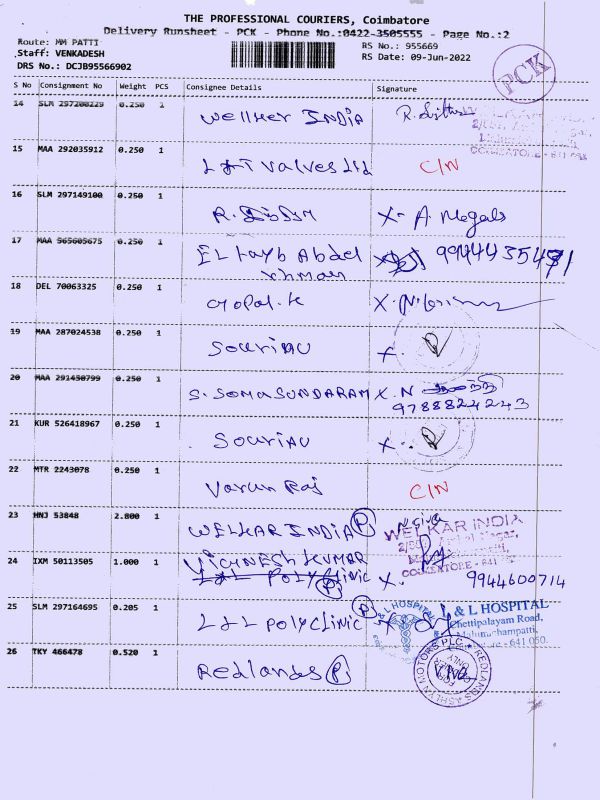 THE PROFESSIONAL COURIERS, Coimbatore
Delivery Runsheet - PCK - Phone No.:0422-3505555 - Page No.:2
Route: MM PATTI
Staff: VENKADESH
DRS No.: DCJB95566902
RS No.: 955669
RS Date: 09-Jun-2022
PCK
S No Consignment No Weight PCS Consignee Details Signature
14 SLM 297200229 0.250 1 Wellker INDIA
COIMBATORE - 641
15 MAA 292035912 0.250 1 L&T Valves Ltd C/N
16 SLM 297149100 0.250 1 R. X- A. Megala
17 MAA 565605675 0.250 1 ELtayb Abdel 9944435471
rhman
18 DEL 70063325 1 Gopal.k X.
0.250
19 MAA 287024538 0.250 1 SouriAU X.
20 MAA 291450799 0.250 1 S. SOMASUNDARAM X. N
9788824243
21 KUR 526418967 0.250 1 SouriAU X.
22 MTR 2243078 0.250 1 Varun Raj C/N
23 HNJ 53848 2.800 1 WELKAR INDIA P
WELKAR INDIA
COIMBATORE - 641
24 IXM 50113505 1.000 1 VIGNESH KUMAR
L&L POLYCLINIC P X. 9944600714
25 SLM 297164695 0.205 1 L&L POLYCLINIC P X
L & L HOSPITAL
L & L HOSPITAL
Chettipalayam Road,
Mahimachampatti,
Coimbatore - 641 050.
26 TKY 466478 0.520 1 Redlands P
REDLANDS ASHLYN MOTORS PLC